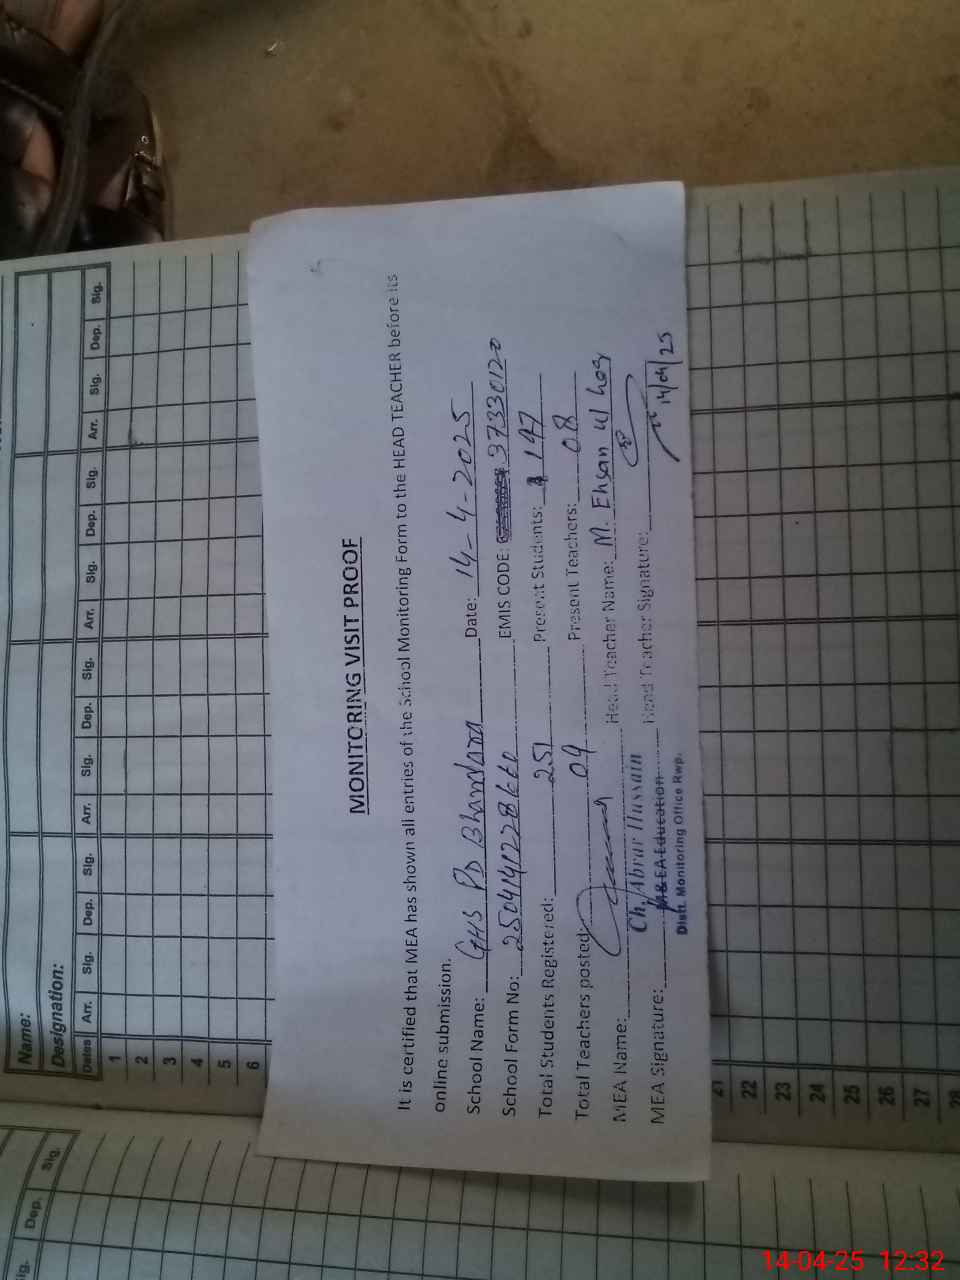 MONITORING VISIT PROOF
It is certified that MEA has shown all entries of the School Monitoring Form to the HEAD TEACHER before its
online submission.
School Name: GHS PD Bhandara Date: 14-4-2025
School Form No: EMIS CODE: 37330120
Total Students Registered: 251 Present Students: 147
Total Teachers posted: 09 Present Teachers: 08
MEA Name: Ch. Abrar Hussain Head Teacher Name: M. Ehsan ul haq
MEA Signature: M&EA Education Head Teacher Signature: 14/04/25
Distt. Monitoring Office Rwp.
Name:
Designation:
Dates Arr. Sig. Dep. Sig. Arr. Sig. Dep. Sig. Arr. Sig. Dep. Sig. Arr. Sig. Dep. Sig.
1
2
3
4
5
6
21
22
23
24
25
26
27
28
Sig. Dep. Sig.
14-04-25 12:32